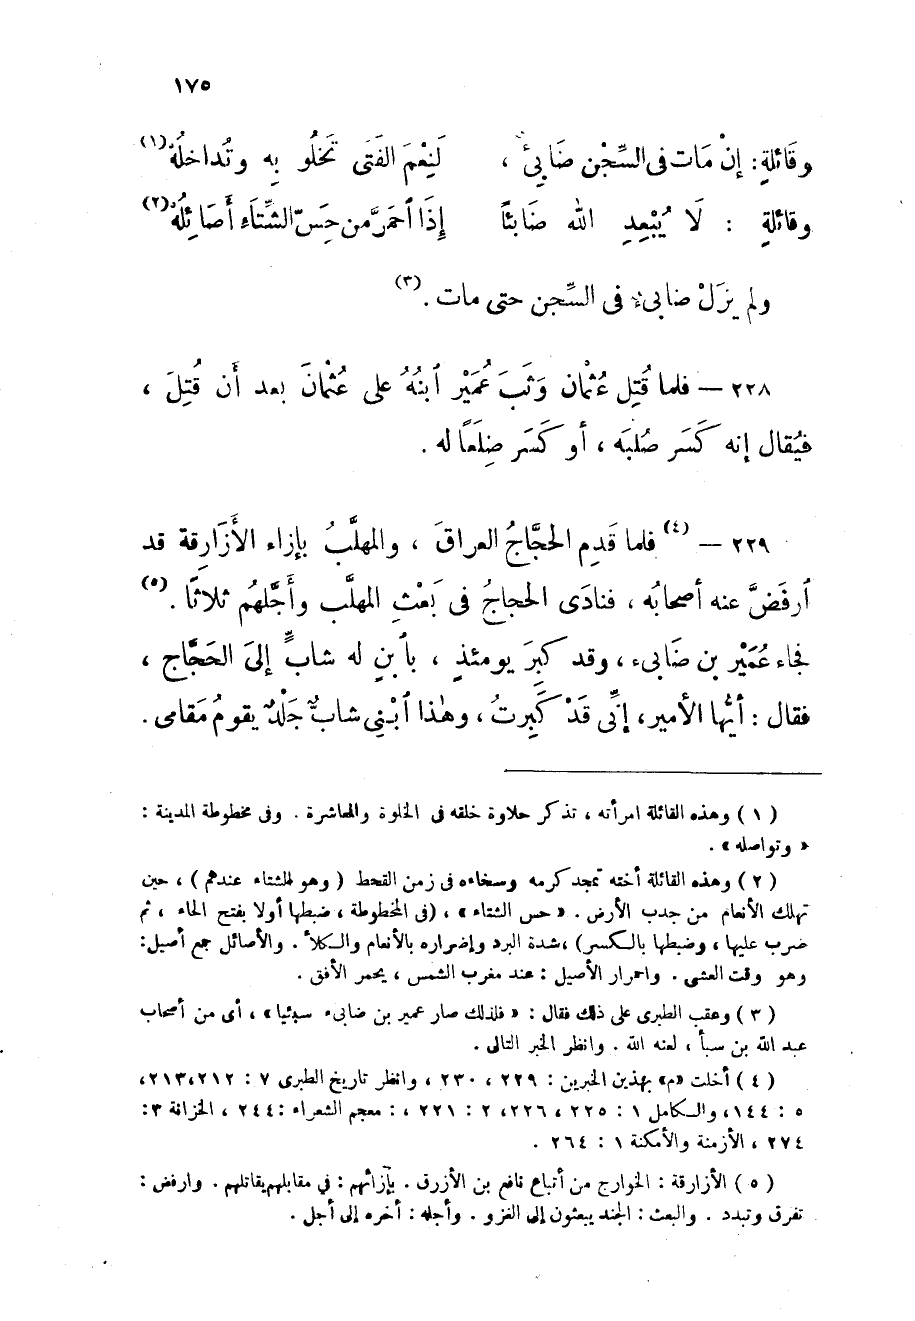 ١٧٥
وقَائلةٍ: إنْ مَات فى السِّجْن ضَابِئٌ ، لَنِعْمَ الفَتَى تَخْلُو بِه وتُداخلُهْ (١)
وقائلةٍ : لَا يُبْعِدِ الله ضَابئاً إِذَا ٱحمَرَّ من حِسّ الشِّتَاءِ أَصَائِلُهْ (٢)
ولم يزَلْ ضابىء فى السِّجن حتى مات . (٣)
٢٢٨ — فلما قُتِل عُثْمان وَثَبَ عُمَيْر ٱبنُهُ على عُثْمانَ بعد أَن قُتِلَ ،
فيُقال إنه كَسَر صُلْبَه ، أو كَسَر ضِلَعًا له .
٢٢٩ — (٤) فلما قَدِم الحجَّاجُ العراقَ ، والمهلَّبُ بإزاء الأَزَارِقة قد
ٱرفَضَّ عنه أصحابُه ، فنادَى الحجاجُ فى بَعْثِ المهلَّب وأَجَّلهُم ثلاثًا . (٥)
فجاء عُمَيْر بن ضَابىء ، وقد كبِرَ يومئذٍ ، بٱبنٍ له شابٍّ إلىَ الحَجَّاج ،
فقال : أيُّها الأمير، إنِّى قَدْ كَبِرتُ ، وهٰذا ٱبْنِى شابٌّ جَلْدٌ يقومُ مَقامى .
( ١ ) وهذه القائلة امرأته ، تذكر حلاوة خلقه فى الخلوة والمعاشرة . وفى مخطوطة المدينة :
« وتواصله » .
( ٢ ) وهذه القائلة أخته تمجد كرمه وسخاءه فى زمن القحط ( وهو للشتاء عندهم ) ، حين
تهلك الأنعام من جدب الأرض . « حس الشتاء » ، (فى المخطوطة ، ضبطها أولا بفتح الحاء ، ثم
ضرب عليها ، وضبطها بالكسر) ،شدة البرد وإضراره بالأنعام والكلأ . والأصائل جمع أصيل:
وهو وقت العشى . واحمرار الأصيل : عند مغرب الشمس ، يحمر الأفق .
( ٣ ) وعقب الطبرى على ذلك فقال : « فلذلك صار عمير بن ضابىء سبئيا » ، أى من أصحاب
عبد الله بن سبأ ، لعنه الله . وانظر الخبر التالى .
( ٤ ) أخلت «م» بهذين الخبرين : ٢٢٩ ، ٢٣٠ ، وانظر تاريخ الطبرى ٧ : ٢١٢،٢١٣،
٥ : ١٤٤، والكامل ١ : ٢٢٥ ، ٢٢٦، ٢ : ٢٢١ ، : معجم الشعراء :٢٤٤ ، الخزانة ٣:
٢٧٤ ، الأزمنة والأمكنة ١ : ٢٦٤ .
( ٥ ) الأزارقة : الخوارج من أتباع نافع بن الأزرق . بإزائهم : فى مقابلهم يقاتلهم . وارفض :
تفرق وتبدد . والبعث : الجند يبعثون إلى الغزو . وأجله : أخره إلى أجل .